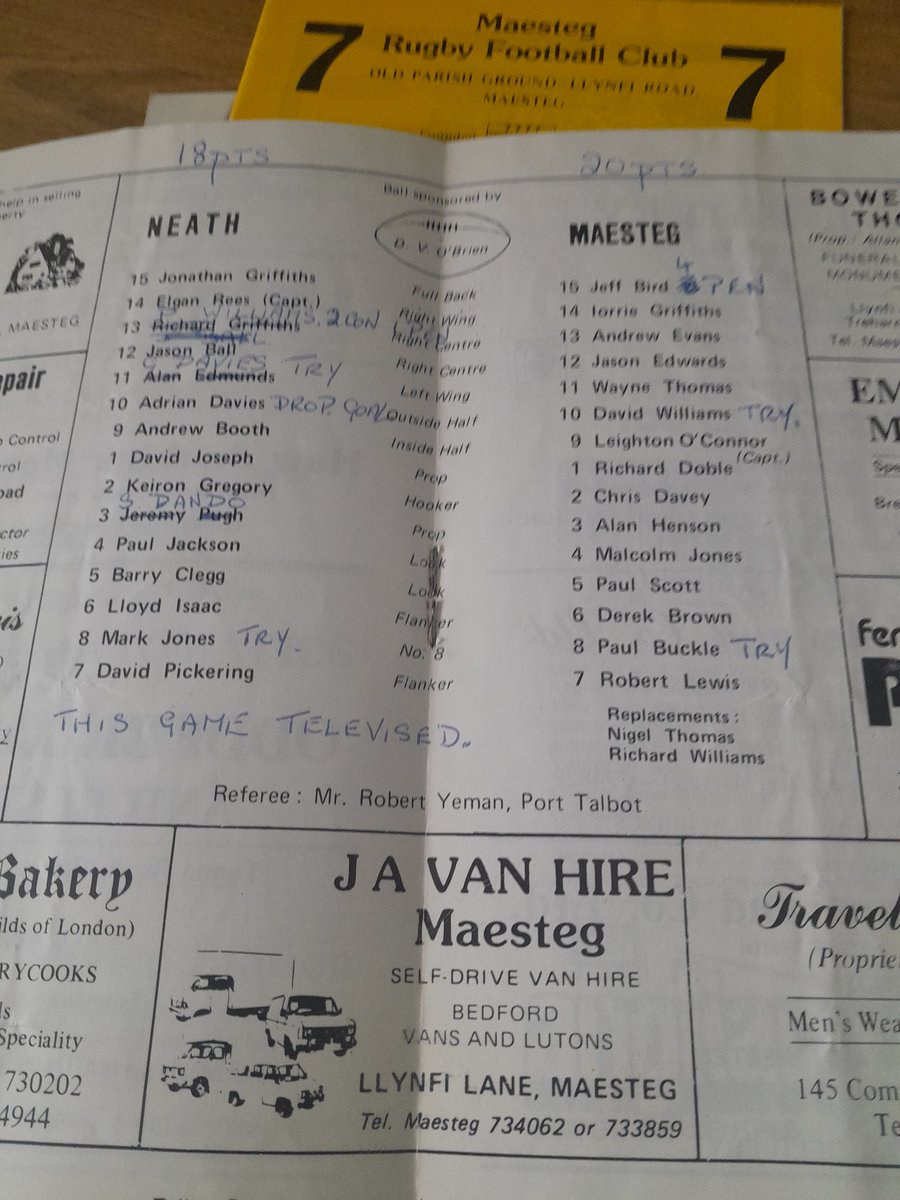 7 Maesteg 7
Rugby Football Club
OLD PARISH GROUND, LLYNFI ROAD,
MAESTEG
18 PTS
20 PTS
help in selling
erty
, MAESTEG
epair
o Control
rol
oad
ctor
ies
Ball sponsored by
D. V. O'Brien
NEATH
MAESTEG
15 Jonathan Griffiths Full Back 15 Jeff Bird 4 PEN
14 Elgan Rees (Capt.) Right Wing 14 Iorrie Griffiths
2 CON 1 PEN
13 Richard Griffiths Right Centre 13 Andrew Evans
12 Jason Ball Right Centre 12 Jason Edwards
DAVIES TRY
11 Alan Edmunds Left Wing 11 Wayne Thomas
10 Adrian Davies DROP GOAL Outside Half 10 David Williams TRY.
9 Andrew Booth Inside Half 9 Leighton O'Connor
(Capt.)
1 David Joseph Prop 1 Richard Doble
2 Keiron Gregory Hooker 2 Chris Davey
S DANDO
3 Jeremy Pugh Prop 3 Alan Henson
4 Paul Jackson Lock 4 Malcolm Jones
5 Barry Clegg Lock 5 Paul Scott
6 Lloyd Isaac Flanker 6 Derek Brown
8 Mark Jones TRY. No. 8 8 Paul Buckle TRY
7 David Pickering Flanker 7 Robert Lewis
THIS GAME TELEVISED.
Replacements :
Nigel Thomas
Richard Williams
Referee : Mr. Robert Yeman, Port Talbot
BOWE
THO
FUNERAL
Tel. Maes
EM
M
Fer
P
Bakery
ilds of London)
RYCOOKS
ls
Speciality
730202
4944
J A VAN HIRE
Maesteg
SELF-DRIVE VAN HIRE
BEDFORD
VANS AND LUTONS
LLYNFI LANE, MAESTEG
Tel. Maesteg 734062 or 733859
Travel
(Proprie
Men's Wea
145 Com
Te